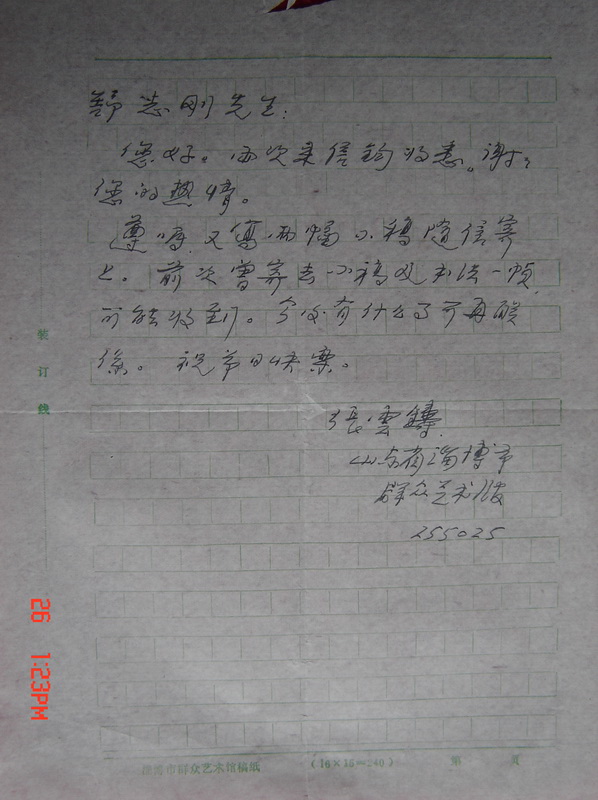 舒志刚先生：
您好。两次来信均收悉。谢谢
您的热情。
遵嘱又写两幅小稿随信寄
上。前次曾寄去小稿及书法一帧
可能收到。今后有什么事可再联
係。祝节日快乐。
張雲
山东省淄博市
群众艺术馆
255025
装订线
淄博市群众艺术馆稿纸 (16×15=240) 第 页
26 1:23PM